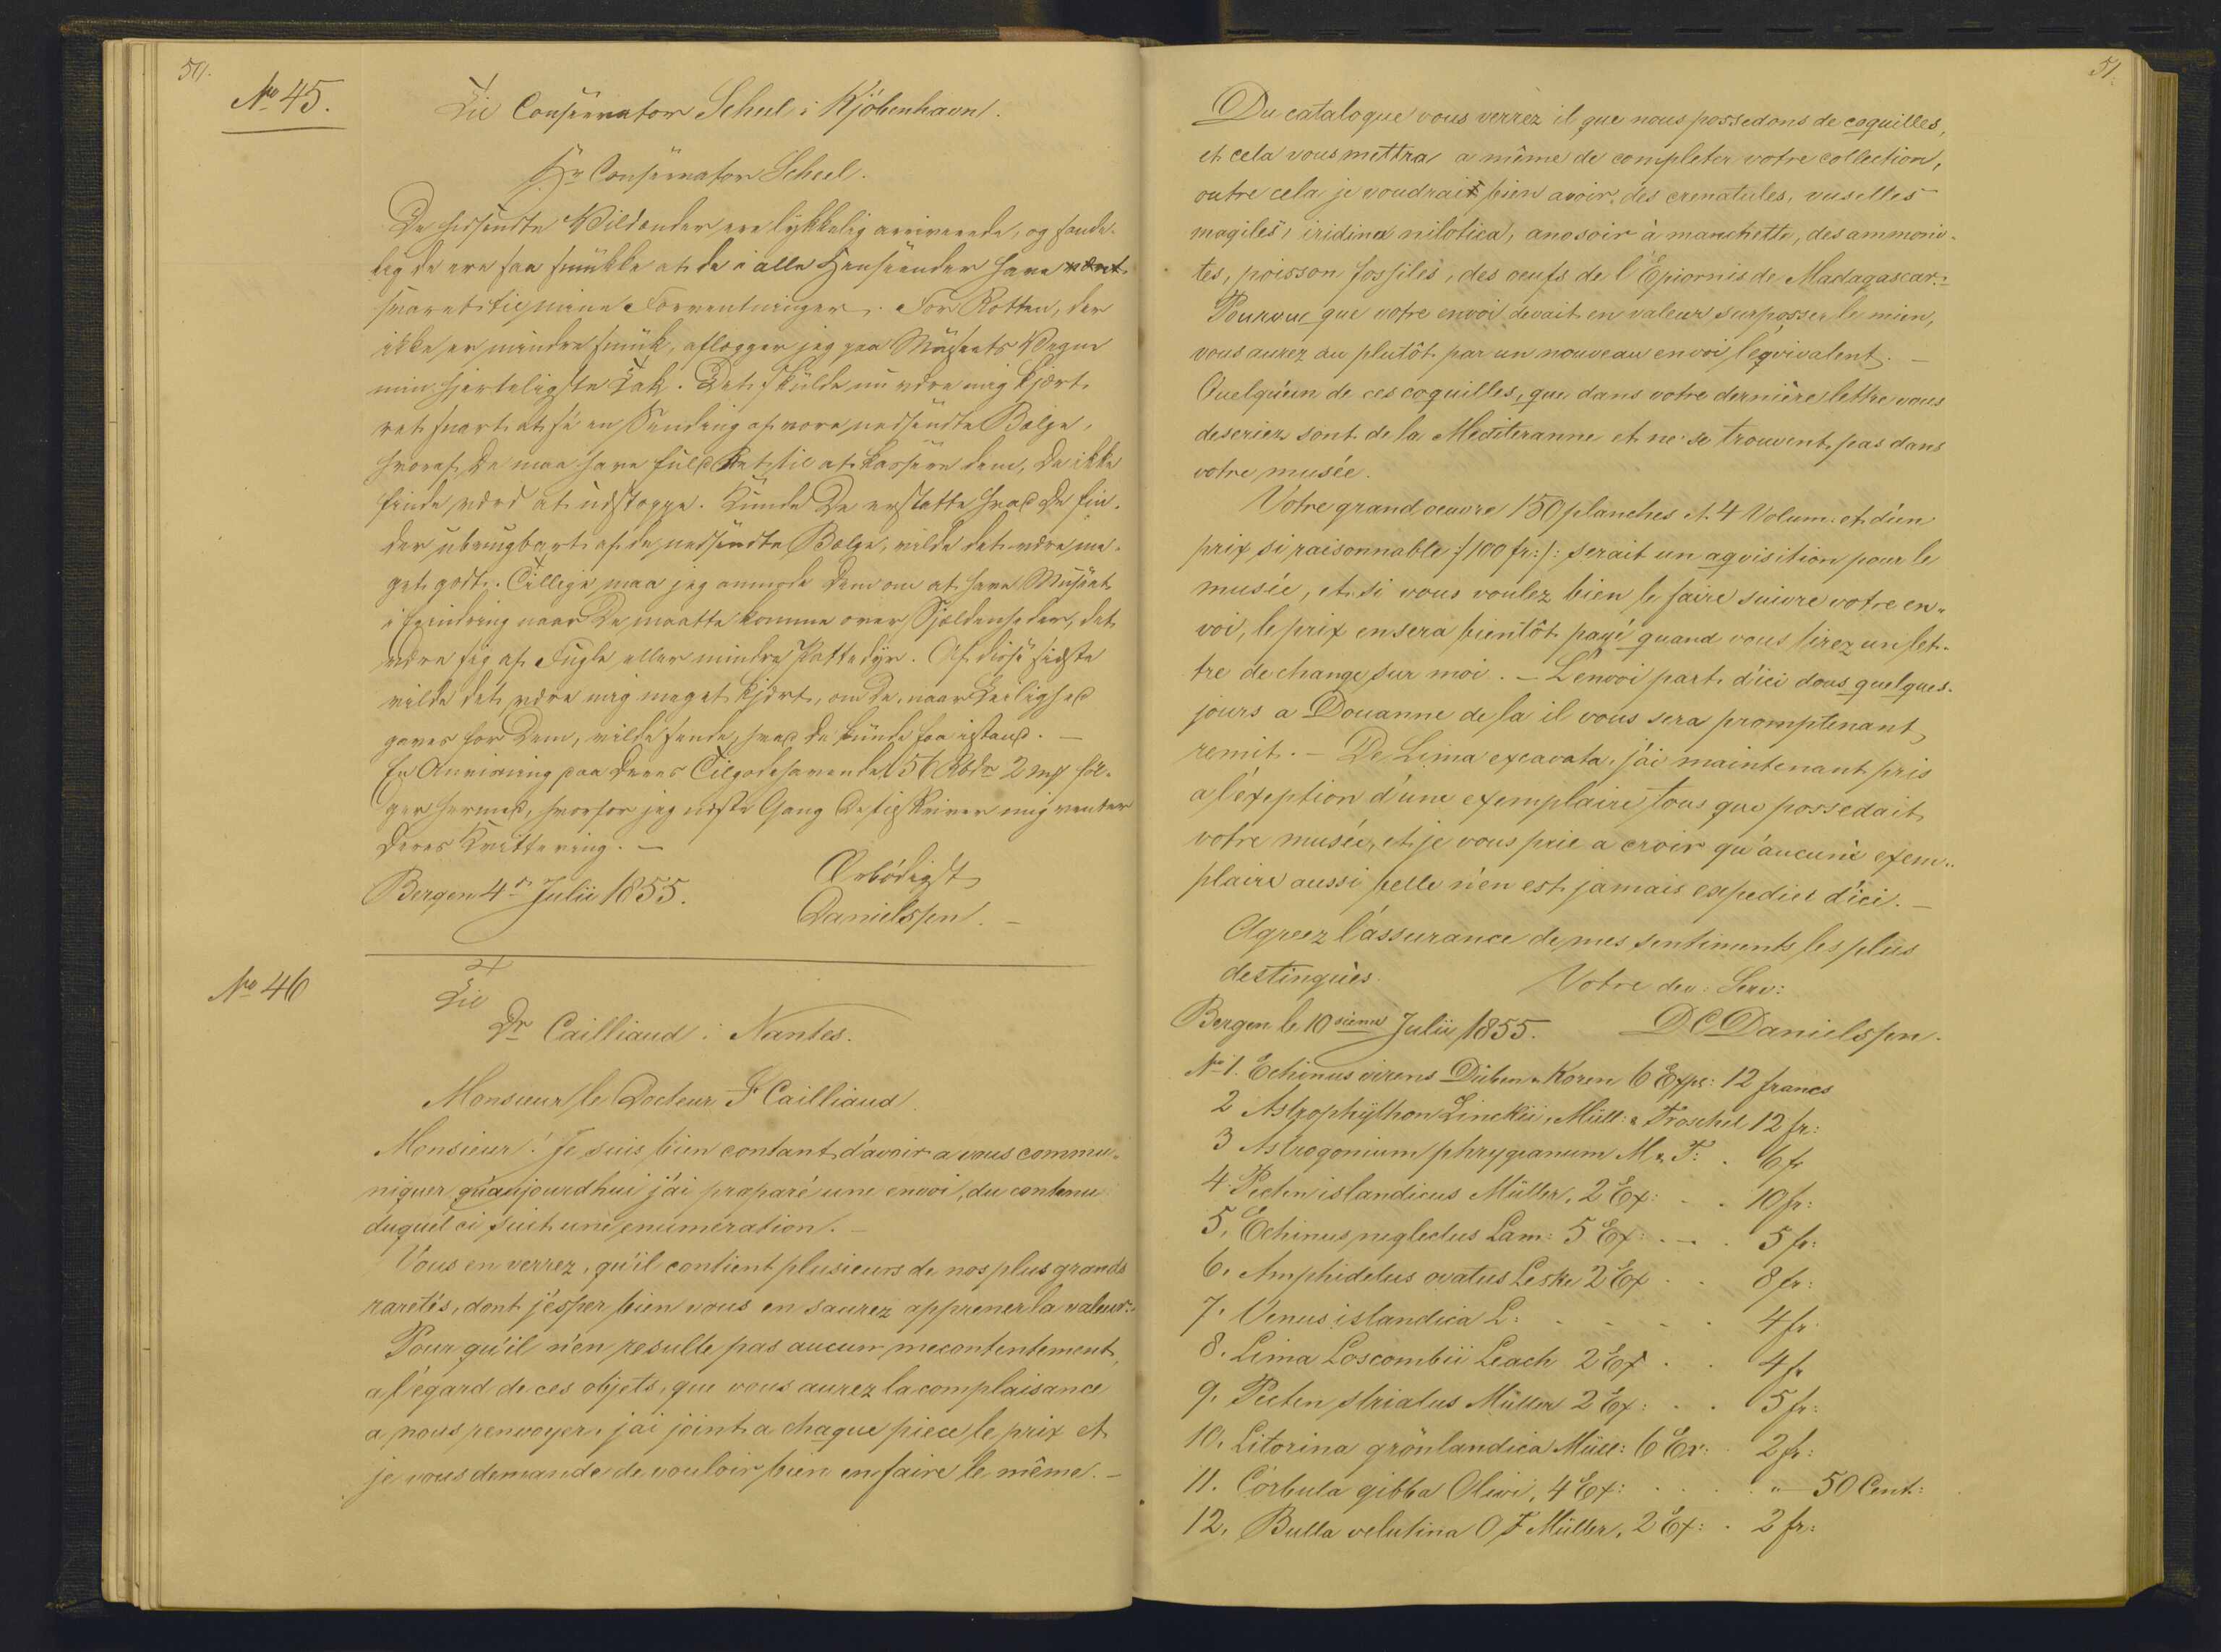 50.
No 45.
Til Conservator Scheel i Kjöbenhavn.
Hr Conservator Scheel.
De hidsendte Vildænder ere lykkelig ariverede, og sande-
lig de ere saa smukke at de i alle Henseender have
svaret til mine Forventninger. For Rotten, der
ikke er mindre smuk, aflægger jeg paa Museets Vegne
min hjerteligste Tak. Det skulde nu være mig kjært
ret snart at få en Sending af vore nedsendte Bælge,
hvoraf De maa have fuld Ret til at kassere dem, De ikke
finde værd at udstoppe. Kunde De erstatte hvad De fin-
der ubrugbart af de nedsendte Bælge, vilde det være me-
get godt. Tillige maa jeg anmode Dem om at have Museet
i Erindring naar De maatte komme over Sjeldenheder, det
være sig af Fugle eller mindre Pattedyr. Af disse sidste
vilde det være mig meget kjært, om De, naar Leilighed
gaves for Dem, vilde sende, hvad De kunde faa istand. —
En Anviisning paa Deres Tilgodehavende 56 Rbdr 2 mk føl-
ger hermed, hvorfor jeg næste Gang De tilskriver mig venter
Deres Kvittering. —
Bergen 4de Julii 1855.
Ærbödigst
Danielssen. —
No 46
Til
Dr Cailliaud i Nantes.
Monsieur le Docteur F Cailliaud.
Monsieur! Je suis bien contant d'avoir a vous commu-
niquer qu'aujourdhui j'ai preparé une envoi, du contenu
duquel ci suit une enumeration. —
Vous en verrez, qu'il contient plusieurs de nos plus grands
raretés, dont j'esper bien vous en saurez apprener la valeur.
Pour qu'il n'en resulte pas aucun mecontentement,
a l'egard de ces objets, que vous aurez la complaisance
a nous renvoyer, j'ai joint a chaque piece le prix et
je vous demande de vouloir bien en faire le même. —
51.
Du catalogue vous verrez il que nous possedons de coquilles,
et cela vous mettra a même de completer votre collection,
outre cela je voudrait bien avoir, des crenatules, vuselles
magiles, iridina nilotica, anosoir à manchette, des ammoni-
tes, poisson fossiles, des oeufs de l'Epiornis de Madagascar.
Pourvue que votre envoi devait en valeur surposser le mien,
vous aurez au plutôt par un nouveau envoi l'eqvivalent. —
Quelqu'un de ces coquilles, que dans votre dernière lettre vous
deseriez sont de la Mediteranne et ne se trouvent pas dans
votre musée.
Votre grand oeuvre 150 planches et 4 Volum: et d'un
prix si raisonnable :/100 fr:/: serait un aqvisition pour le
musée, et si vous voulez bien le faire suivre votre en-
voi, le prix en sera bientôt payé quand vous tirez un let-
tre de change sur moi. — L'envoi part d'ici dous quelques
jours a Douanne de la il vous sera promptenant
remit. — De Lima excavata, j'ai maintenant pris
a l'exeption d'une exemplaire tous que possedait
votre musée, et je vous prie a croir qu'aucune exem-
plaire aussi belle n'en est jamais expedier d'ici. —
Agreez l'assurance de mes sentiments les plus
destinguès.
Votre dev: Serv:
Bergen le 10sieme Julii 1855.
DC Danielssen.
No 1. Echinus virens Düben & Koren 6 Expl: 12 francs
2 Astrophÿthon Linckii, Müll: & Troschel 12 fr:
3 Astrogonium phrygianum M & T: . 6 fr
4. Pecten islandicus Müller, 2 Ex: . . 10 fr:
5, Echinus neglectus Lam: 5 Ex: . . . 5 fr:
6, Amphidetus ovatus Leske 2 Ex . . 8 fr:
7, Venus islandica L: . . . . . 4 fr
8. Lima Loscombii Leach 2 Ex . . 4 fr
9, Pecten striatus Müller 2 Ex: . . 5 fr:
10, Litorina grönlandica Müll: 6 Ex: . 2 fr:
11. Corbula gibba Olivi, 4 Ex: . . . . " — 50 Cent:
12, Bulla velutina O F Müller, 2 Ex: . 2 fr: